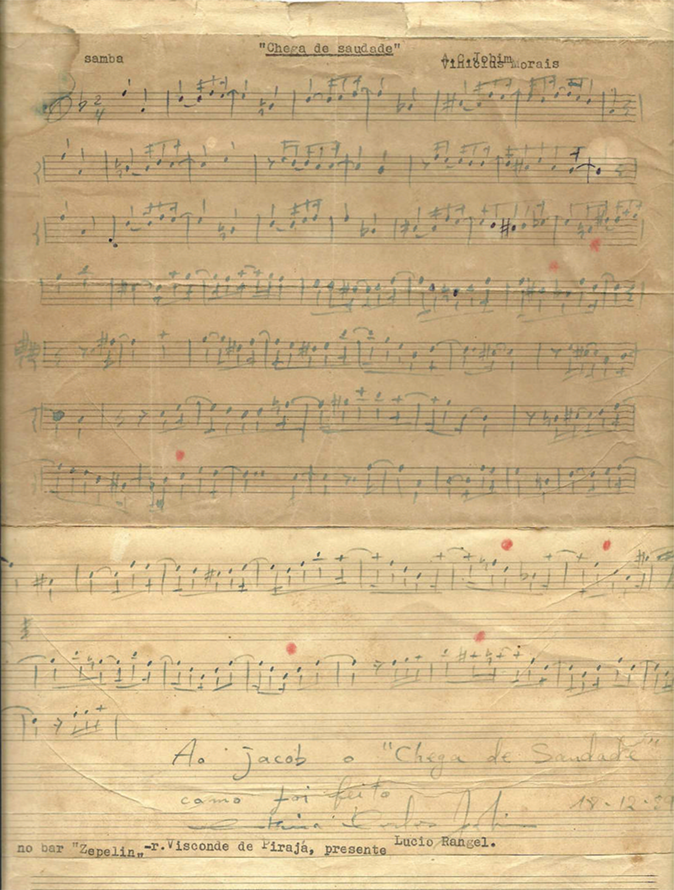 "Chega de saudade"
samba
A.C.Jobim
Vinicius Morais
2
4
Ao jacob o "Chega de Saudade"
como foi feito
18-12-59
Antonio Carlos Jobim
no bar "Zepelin„-r.Visconde de Pirajá, presente Lucio Rangel.